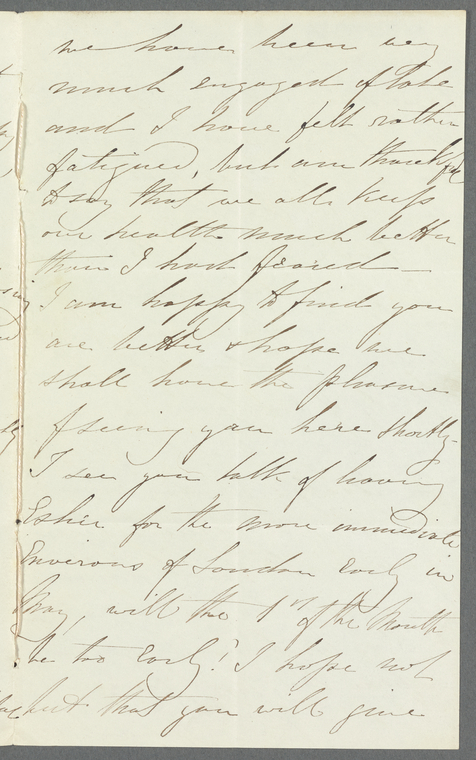 we have been very
much engaged of late
and I have felt rather
fatigued, but am thankful
to say that we all keep
our health much better
than I had feared —
I am happy to find you
are better & hope we
shall have the pleasure
of seeing you here shortly —
I see you talk of leaving
Esher for the more immediate
Environs of London Early in
May, will the 1st of the Month
be too Early? I hope not
but that you will give